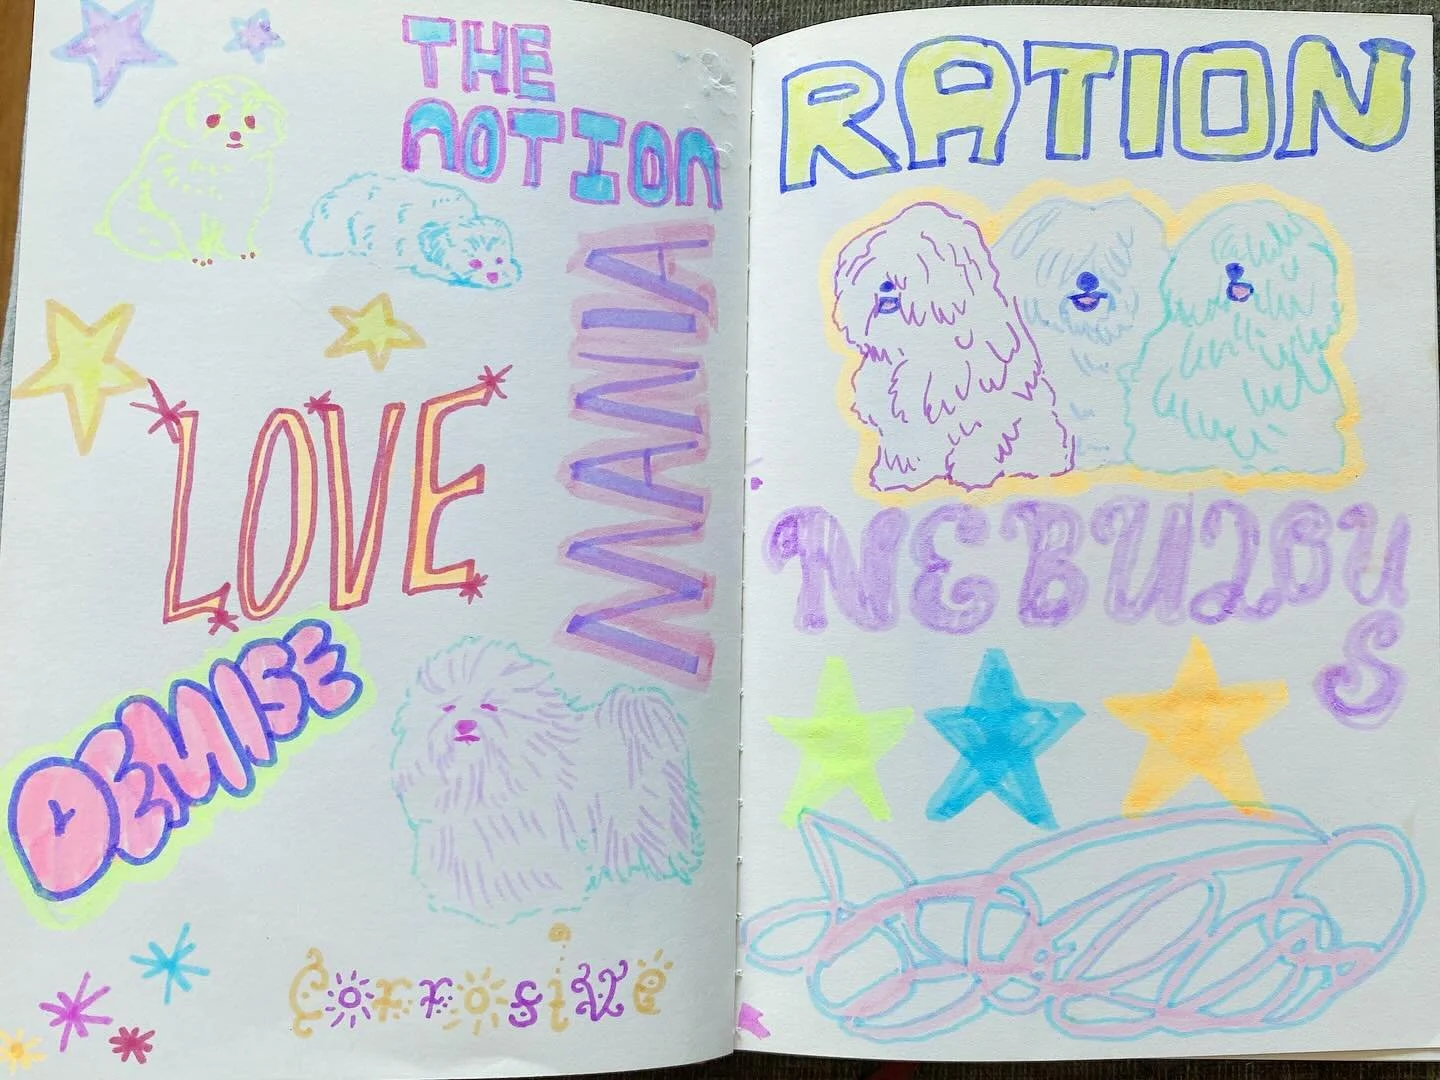 THE
NOTION
MANIA
LOVE
DEMISE
Corrosive
RATION
NEBULOU
S